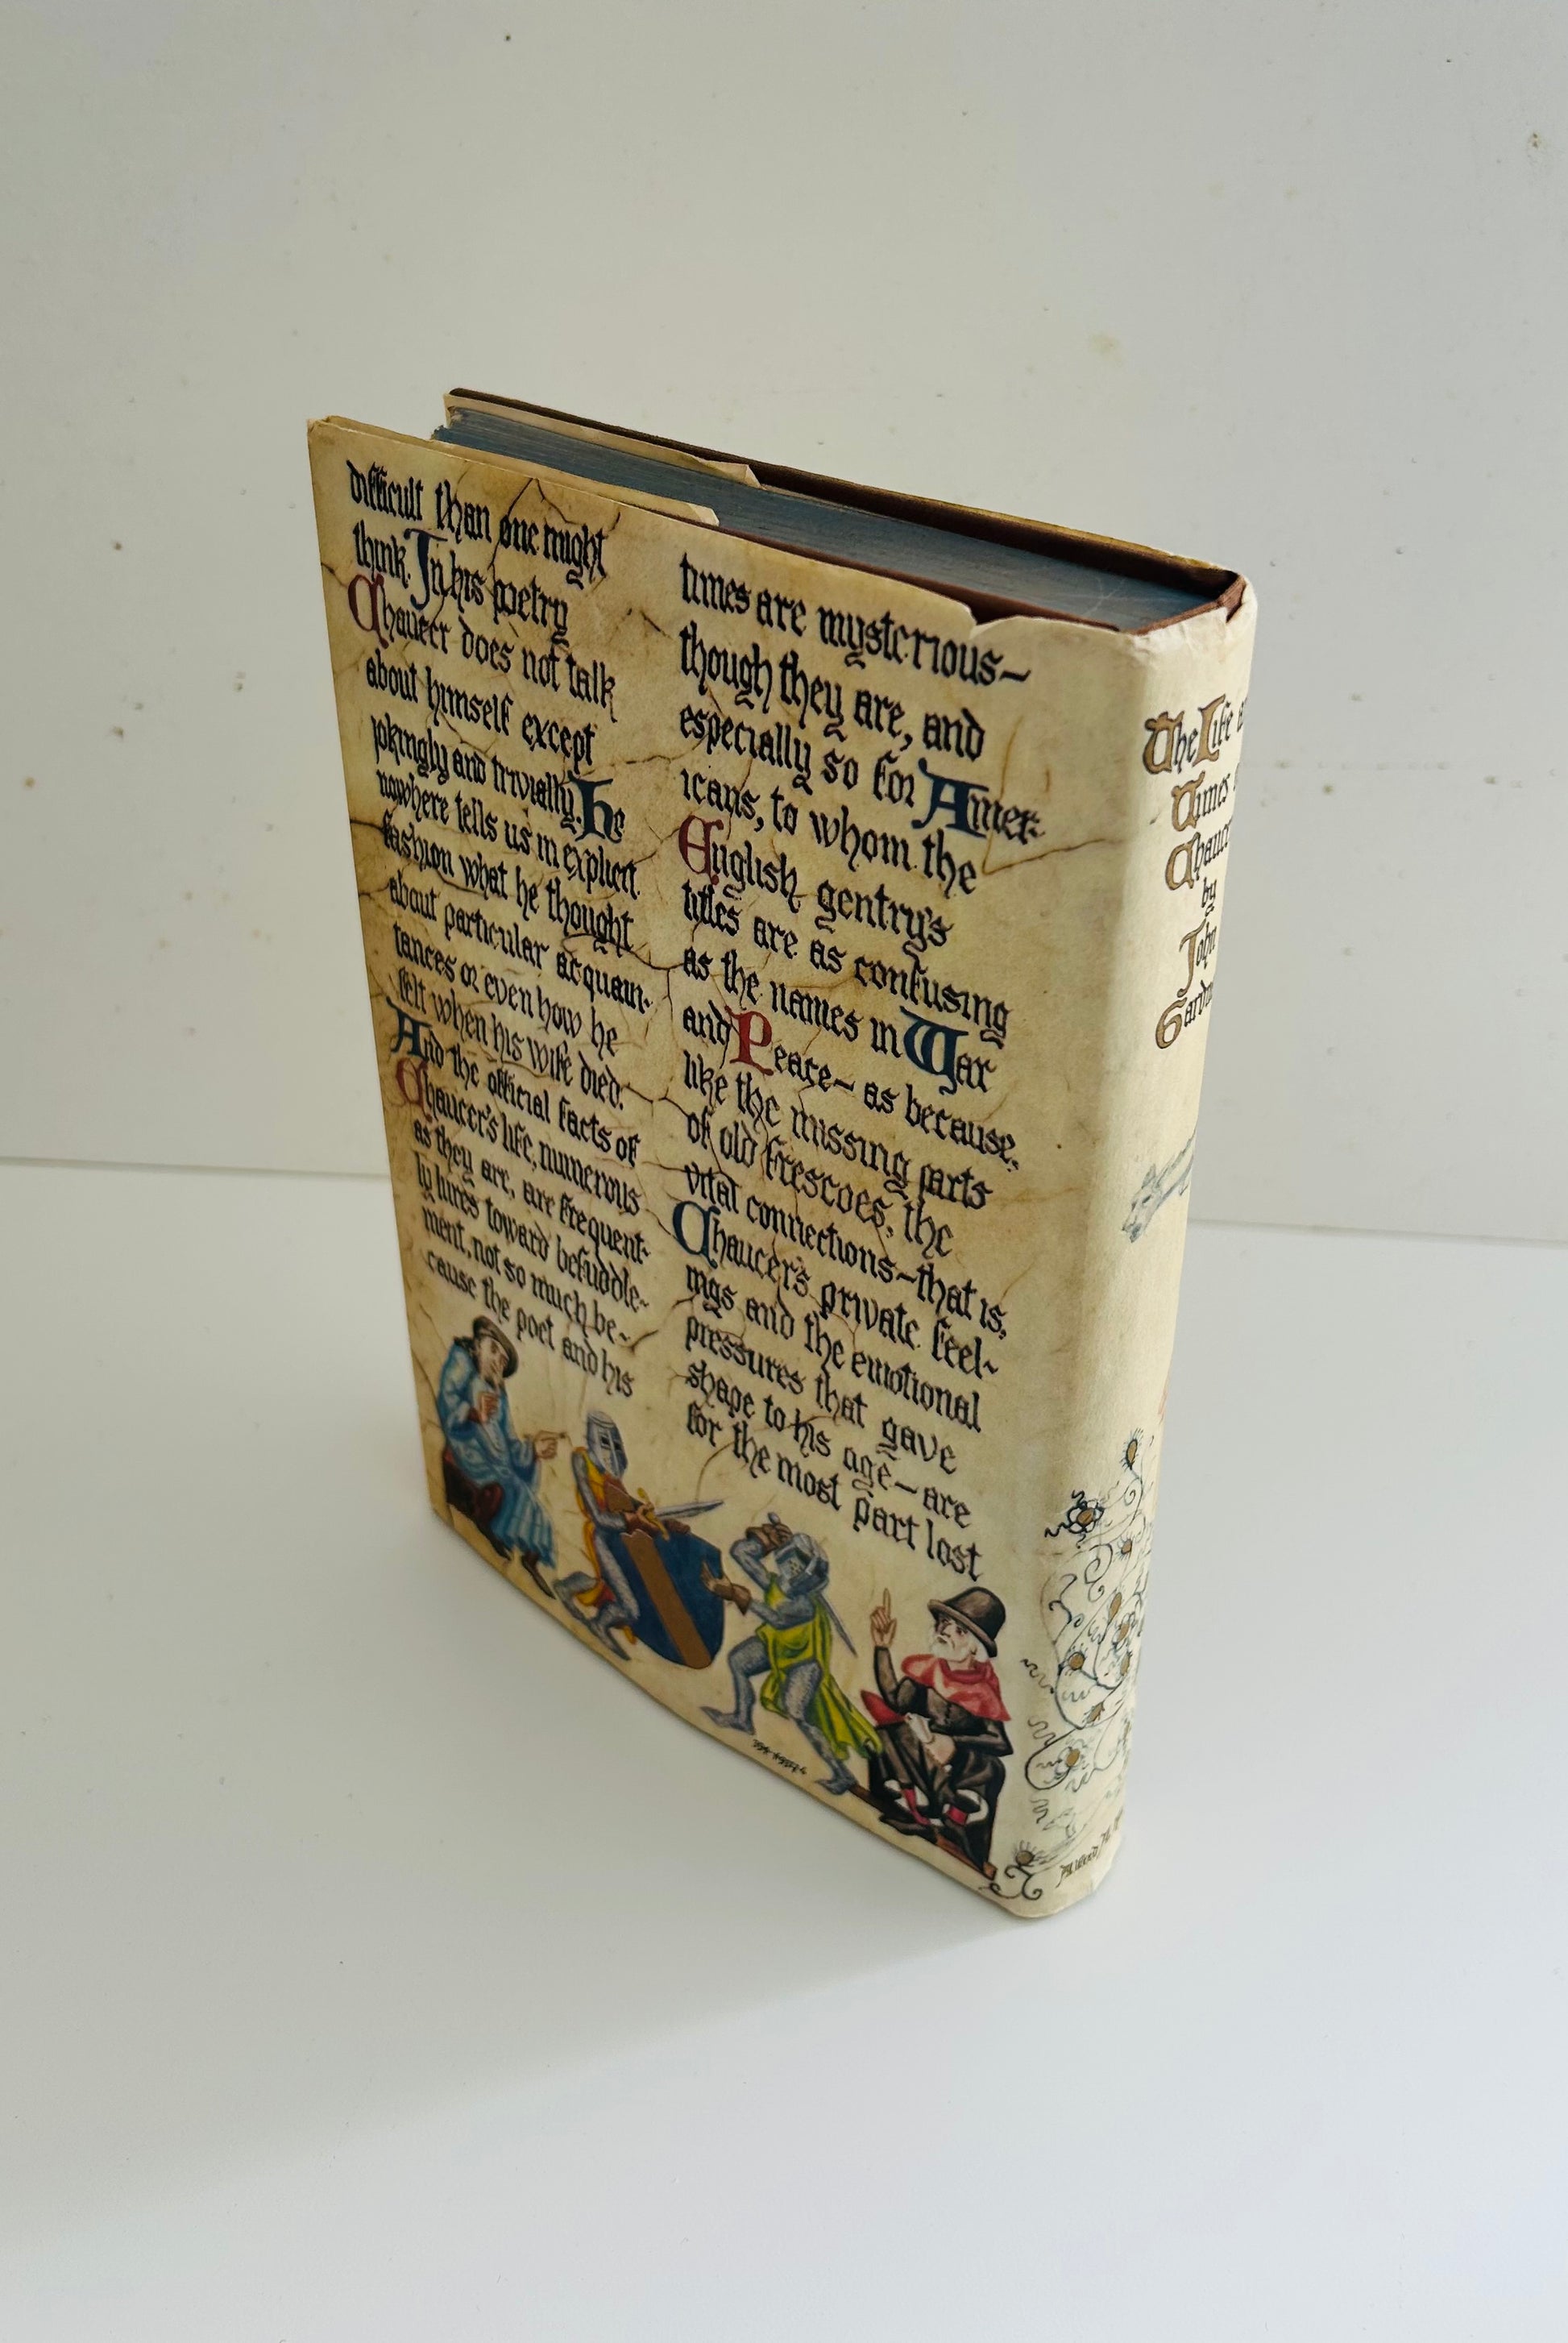 difficult than one might
think. In his poetry
Chaucer does not talk
about himself except
jokingly and trivially. He
nowhere tells us in explicit
fashion what he thought
about particular acquain-
tances or even how he
felt when his wife died.
And the official facts of
Chaucer's life, numerous
as they are, are frequent-
ly hires toward befuddle-
ment, not so much be-
cause the poet and his
times are mysterious—
though they are, and
especially so for Amer-
icans, to whom the
English gentry's
titles are as confusing
as the names in War
and Peace— as because,
like the missing parts
of old frescoes, the
vital connections—that is,
Chaucer's private feel-
ings and the emotional
pressures that gave
shape to his age—are
for the most part lost
394-49317-6
The Life
Times
Chauc
by
John
Gardn
Alfred A.